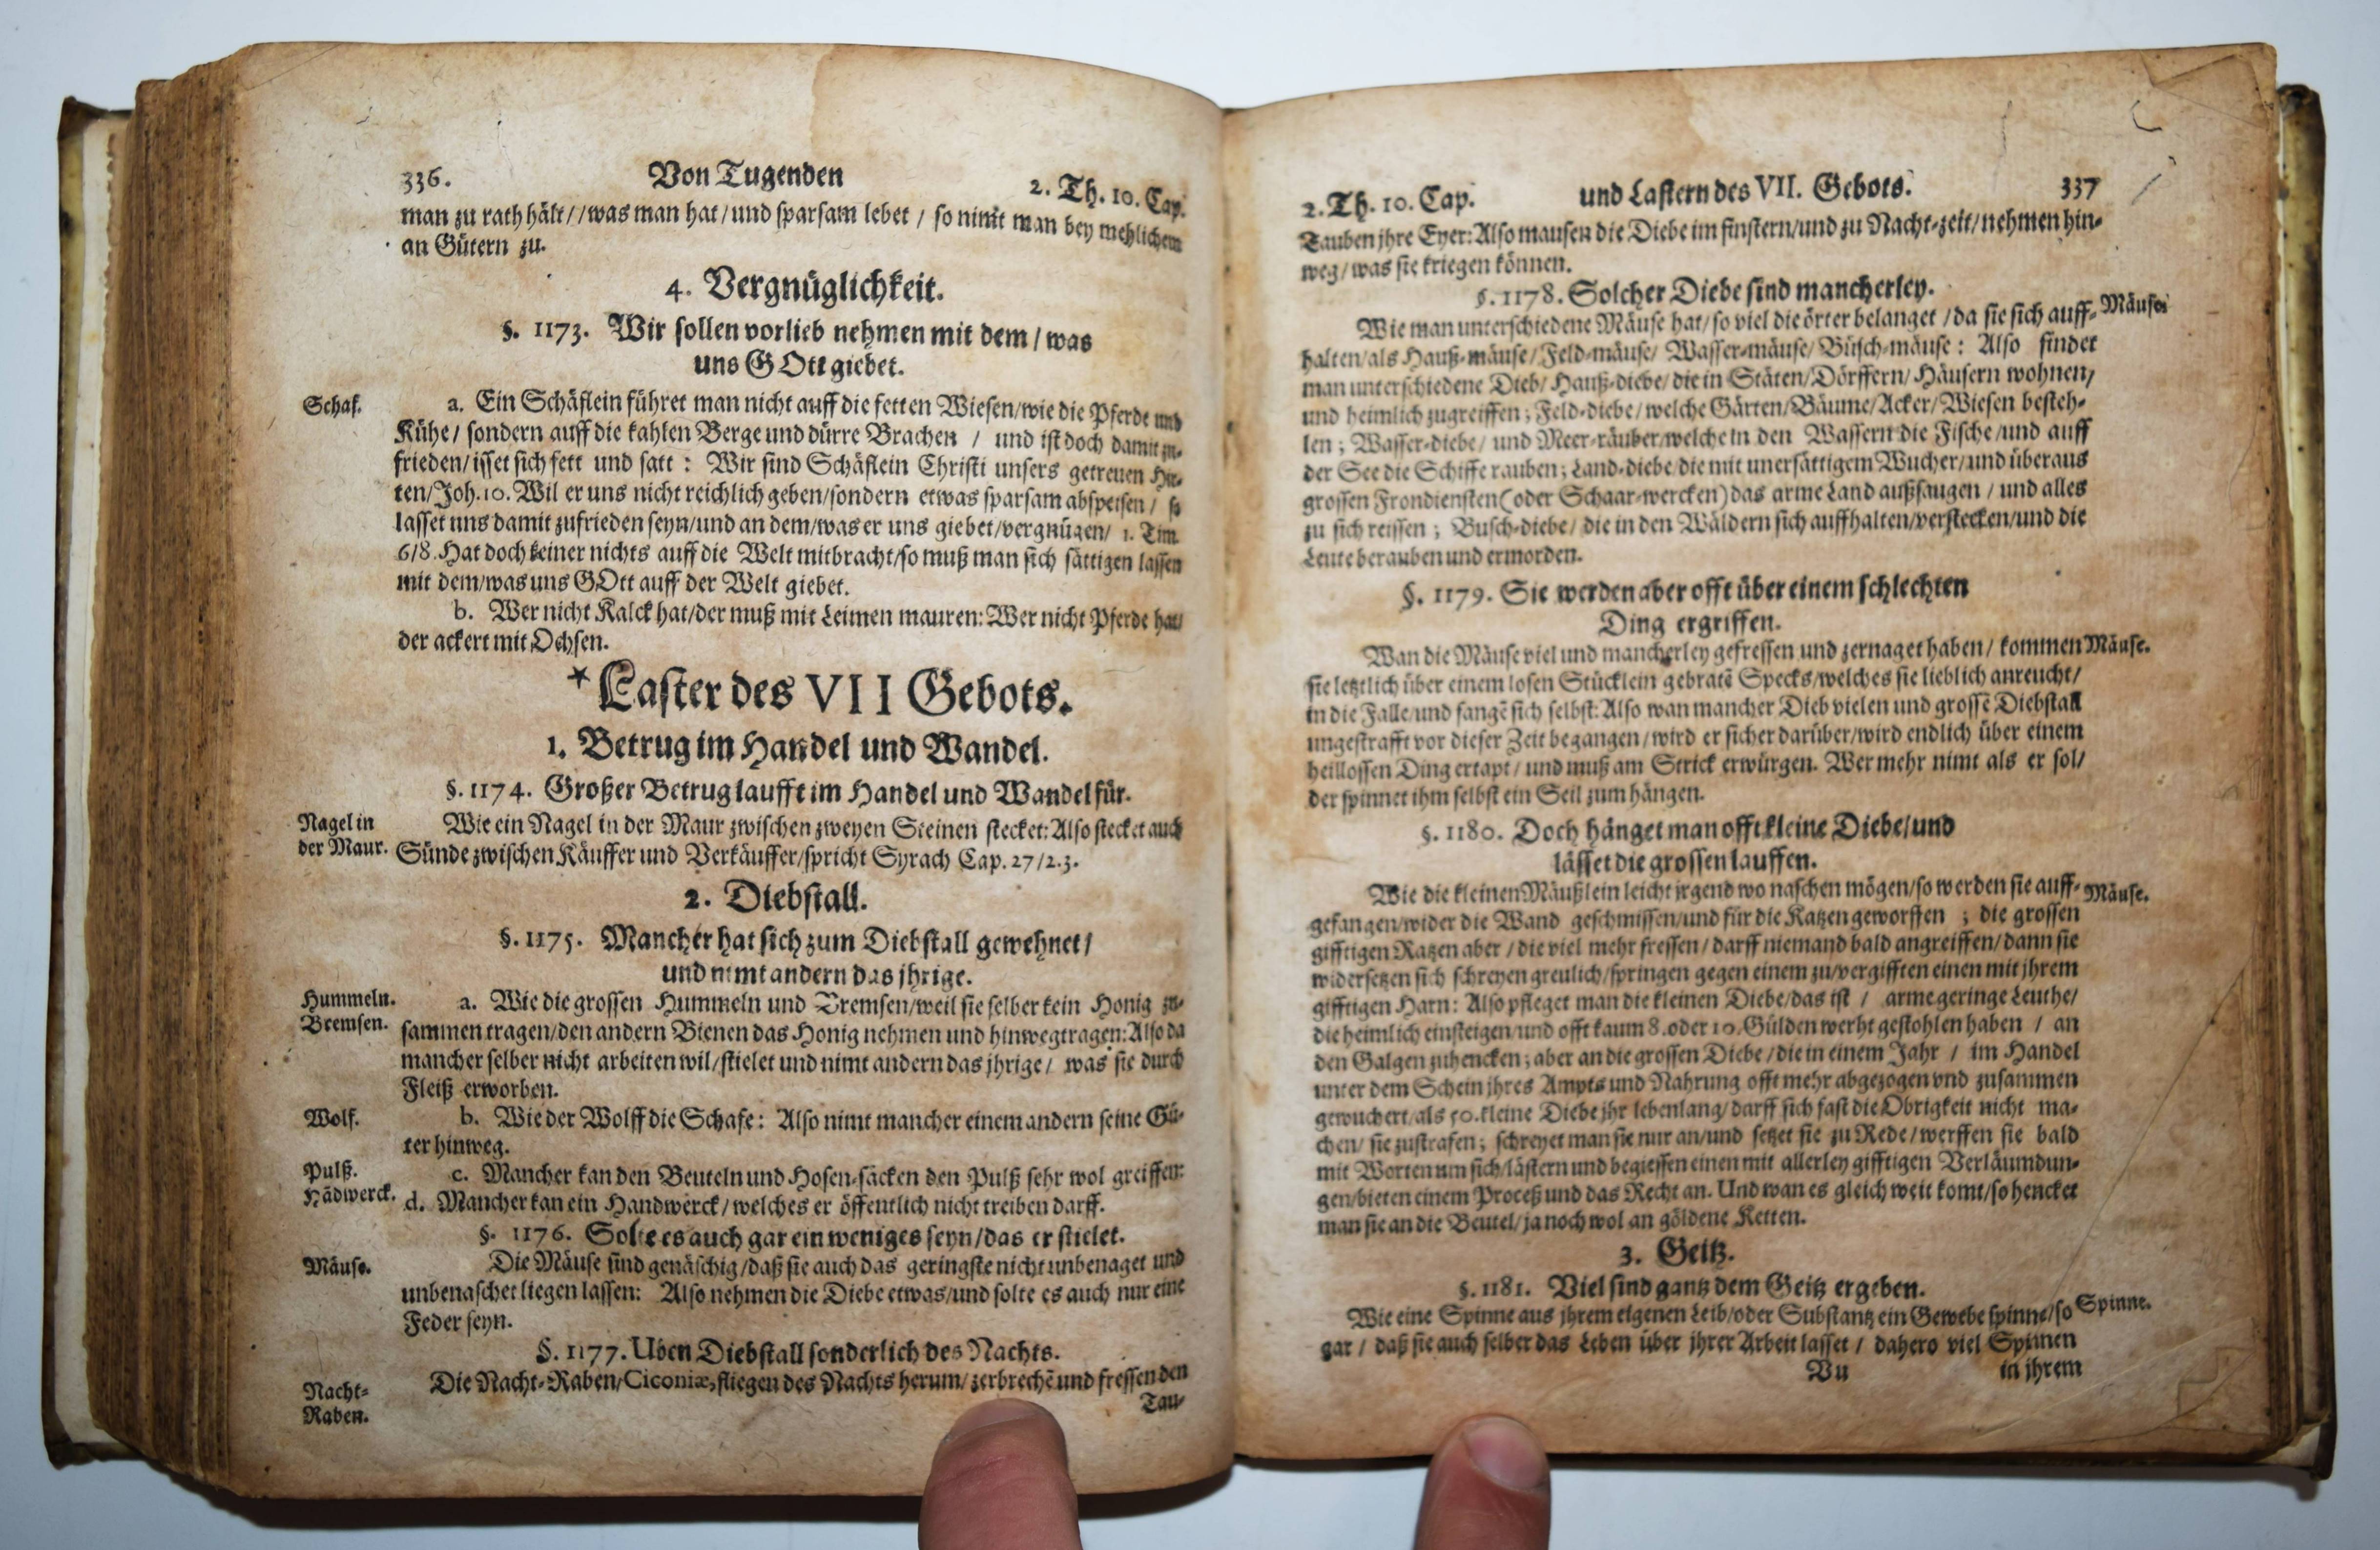 336. Von Tugenden 2. Th. 10. Cap.
man zu rath hält / / was man hat / und sparsam lebet / so nimt man bey mehlichem
an Gütern zu.
4. Vergnüglichkeit.
§. 1173. Wir sollen vorlieb nehmen mit dem / was
uns GOtt giebet.
Schaf. a. Ein Schäflein führet man nicht auff die fetten Wiesen/wie die Pferde und
Kühe / sondern auff die kahlen Berge und dürre Brachen / und ist doch damit zu-
frieden/isset sich fett und satt : Wir sind Schäflein Christi unsers getreuen Hir-
ten/Joh. 10. Wil er uns nicht reichlich geben/sondern etwas sparsam abspeisen / so
lasset uns damit zufrieden seyn/und an dem/was er uns giebet/vergnügen/ 1. Tim.
6/8. Hat doch keiner nichts auff die Welt mitbracht/so muß man sich sättigen lassen
mit dem/was uns GOtt auff der Welt giebet.
b. Wer nicht Kalck hat/der muß mit Leimen mauren: Wer nicht Pferde hat/
der ackert mit Ochsen.
* Laster des VII Gebots.
1. Betrug im Handel und Wandel.
§. 1174. Großer Betrug laufft im Handel und Wandel für.
Nagel in Wie ein Nagel in der Maur zwischen zweyen Steinen stecket: Also stecket auch
der Maur. Sünde zwischen Käuffer und Verkäuffer/spricht Syrach Cap. 27/2.3.
2. Diebstall.
§. 1175. Mancher hat sich zum Diebstall gewehnet /
und nimt andern das jhrige.
Hummeln. a. Wie die grossen Hummeln und Bremsen/weil sie selber kein Honig zu-
Bremsen. sammen tragen/den andern Bienen das Honig nehmen und hinwegtragen: Also da
mancher selber nicht arbeiten wil/stielet und nimt andern das jhrige / was sie durch
Fleiß erworben.
Wolf. b. Wie der Wolff die Schafe : Also nimt mancher einem andern seine Gü-
ter hinweg.
Pulß. c. Mancher kan den Beuteln und Hosen-säcken den Pulß sehr wol greiffen:
Hādwerck. d. Mancher kan ein Handwerck / welches er öffentlich nicht treiben darff.
§. 1176. Solte es auch gar ein weniges seyn/das er stielet.
Mäuse. Die Mäuse sind genäschig/daß sie auch das geringste nicht unbenaget und
unbenaschet liegen lassen: Also nehmen die Diebe etwas/und solte es auch nur eine
Feder seyn.
§. 1177. Uben Diebstall sonderlich des Nachts.
Nacht- Die Nacht-Raben/Ciconiæ, fliegen des Nachts herum/ zerbrechē und fressen den
Raben. Tau-
2. Th. 10. Cap. und Lastern des VII. Gebots. 337
Tauben jhre Eyer: Also mausen die Diebe im finstern/und zu Nacht-zeit/nehmen hin-
weg / was sie kriegen können.
§. 1178. Solcher Diebe sind mancherley.
Wie man unterschiedene Mäuse hat/so viel die örter belanget / da sie sich auff- Mäuse.
halten/als Hauß-mäuse/Feld-mäuse/ Wasser-mäuse/Büsch-mäuse : Also findet
man unterschiedene Dieb/ Hauß-diebe/ die in Stäten/Dörffern/Häusern wohnen/
und heimlich zugreiffen ; Feld-diebe/welche Gärten/Bäume/Acker/Wiesen besteh-
len ; Wasser-diebe/ und Meer-räuber/welche in den Wassern die Fische/und auff
der See die Schiffe rauben ; Land-diebe/die mit unersättigem Wucher/und überaus
grossen Frondiensten (oder Schaar-wercken) das arme Land außsaugen / und alles
zu sich reissen ; Busch-diebe/ die in den Wäldern sich auffhalten/verstecken/und die
Leute berauben und ermorden.
§. 1179. Sie werden aber offt über einem schlechten
Ding ergriffen.
Wan die Mäuse viel und mancherley gefressen und zernaget haben/ kommen Mäuse.
sie letztlich über einem losen Stücklein gebratē Specks/welches sie lieblich anreucht/
in die Falle/und fangē sich selbst: Also wan mancher Dieb vielen und grossē Diebstall
ungestrafft vor dieser Zeit begangen/wird er sicher darüber/wird endlich über einem
heillossen Ding ertapt / und muß am Strick erwürgen. Wer mehr nimt als er sol/
der spinnet ihm selbst ein Seil zum hängen.
§. 1180. Doch hänget man offt kleine Diebe/und
lässet die grossen lauffen.
Wie die kleinen Mäußlein leicht irgend wo naschen mögen/so werden sie auff- Mäuse.
gefangen/wider die Wand geschmissen/und für die Katzen geworffen ; die grossen
gifftigen Ratzen aber / die viel mehr fressen / darff niemand bald angreiffen/dann sie
widersetzen sich schreyen greulich/springen gegen einem zu/vergifften einen mit jhrem
gifftigen Harn: Also pfleget man die kleinen Diebe/das ist / arme geringe Leuthe/
die heimlich einsteigen/und offt kaum 8. oder 10. Gülden werht gestohlen haben / an
den Galgen zuhencken; aber an die grossen Diebe / die in einem Jahr / im Handel
unter dem Schein jhres Ampts und Nahrung offt mehr abgezogen vnd zusammen
gewuchert/als 50. kleine Diebe jhr lebenlang/darff sich fast die Obrigkeit nicht ma-
chen/ sie zustrafen ; schreyet man sie nur an/und setzet sie zu Rede/werffen sie bald
mit Worten um sich/lästern und begiessen einen mit allerley gifftigen Verläumdun-
gen/bieten einem Proceß und das Recht an. Und wan es gleich weit komt/so hencket
man sie an die Beutel/ja noch wol an göldene Ketten.
3. Geitz.
§. 1181. Viel sind gantz dem Geitz ergeben.
Wie eine Spinne aus jhrem eigenen Leib/oder Substantz ein Gewebe spinne/so Spinne.
gar / daß sie auch selber das Leben über jhrer Arbeit lasset / dahero viel Spinnen
Vu in jhrem